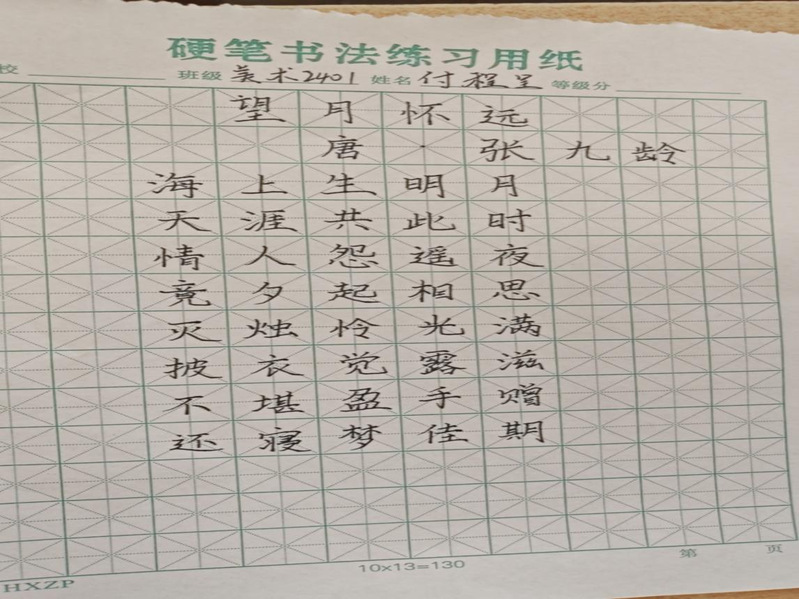 硬笔书法练习用纸
校 班级 美术2401 姓名 付程呈 等级分
望月怀远
唐·张九龄
海上生明月
天涯共此时
情人怨遥夜
竟夕起相思
灭烛怜光满
披衣觉露滋
不堪盈手赠
还寝梦佳期
HXZP 10x13=130 第 页